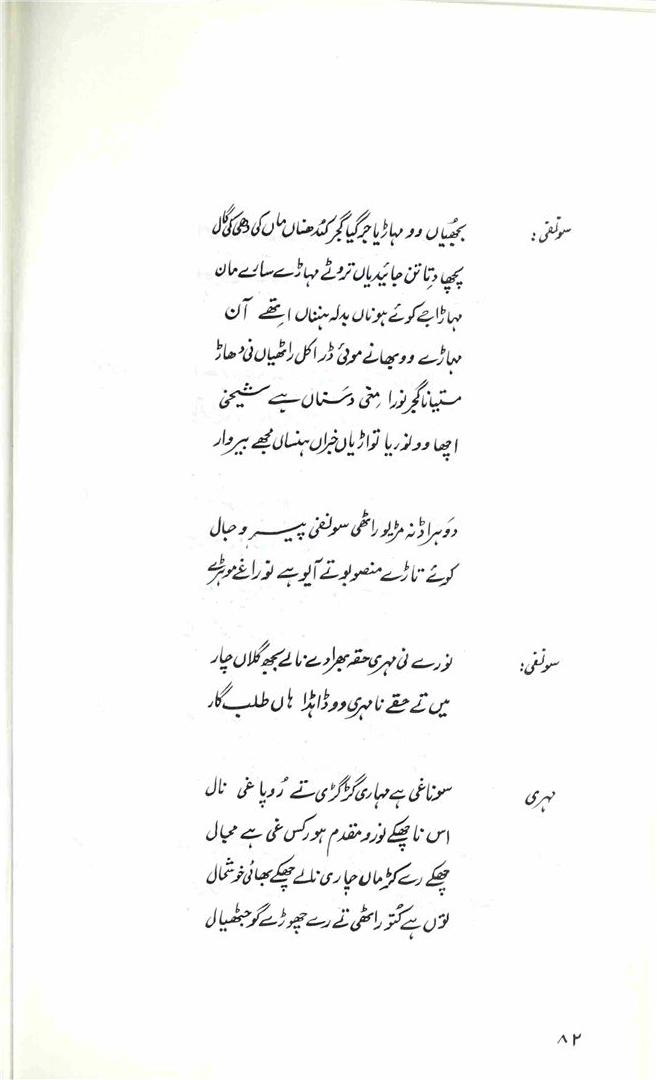 سولفی: بجھیاں وو مہاڑیا جر گیا گجر کنڈھناں ماں کی دھی کی گال
پچھا دتا تن جائیدیاں تروٹے مہاڑے سارے مان
مہاڑا جے کوئے ہوناں بدلہ ہنناں اتھے آن
مہاڑے وو بھانے موئی ڈراکل راٹھیاں نی دھاڑ
متیانا گجر نورا مغی دستاں ہے شیخی
اچھا وو نوریا تواڑیاں خبراں ہنساں مجھے بیروار
دوہرا ڈنہ مڑیو راٹھی سولفی پیر وجال
کوئے تاڑے منصوبو تے آیو ہے نوراغے موہڑے
سولفی: نورے نی مہری حقہ بھرا دے نالے سجھ گلاں چار
میں تے حقے نا مہری وو ڈاہڈا ہاں طلب گار
مہری سوناغی ہے مہاری گڑگڑی تے رُوپا غی نال
اس نا چھکے نورو مقدم ہور کس غی ہے مجال
چھکے رے کڑماں چاری نالے چھکے بھائی خوشحال
توں ہے کُتو راٹھی تے رے چھوڑے گو جٹھیال
۸۲